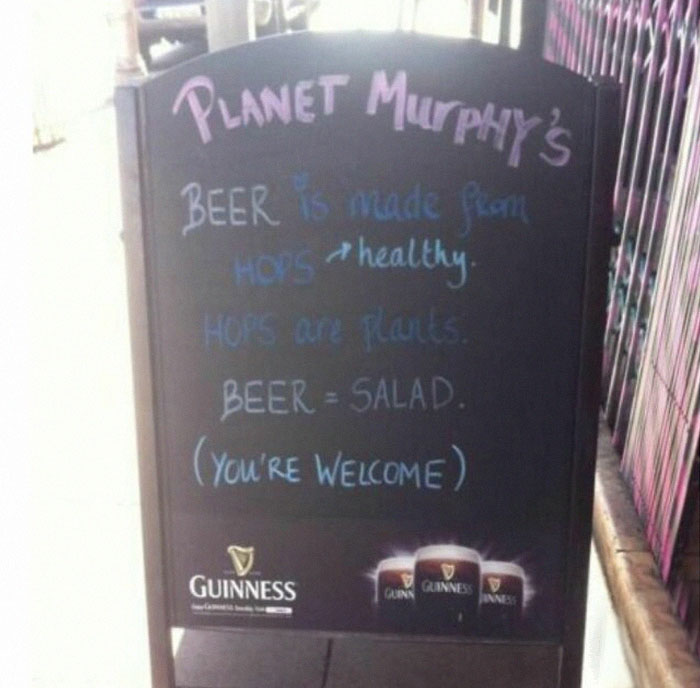 PLANET MURPHY'S
BEER is made from
HOPS → healthy.
HOPS are Plants.
BEER = SALAD.
(YOU'RE WELCOME)
GUINNESS
GUINN GUINNESS INNESS